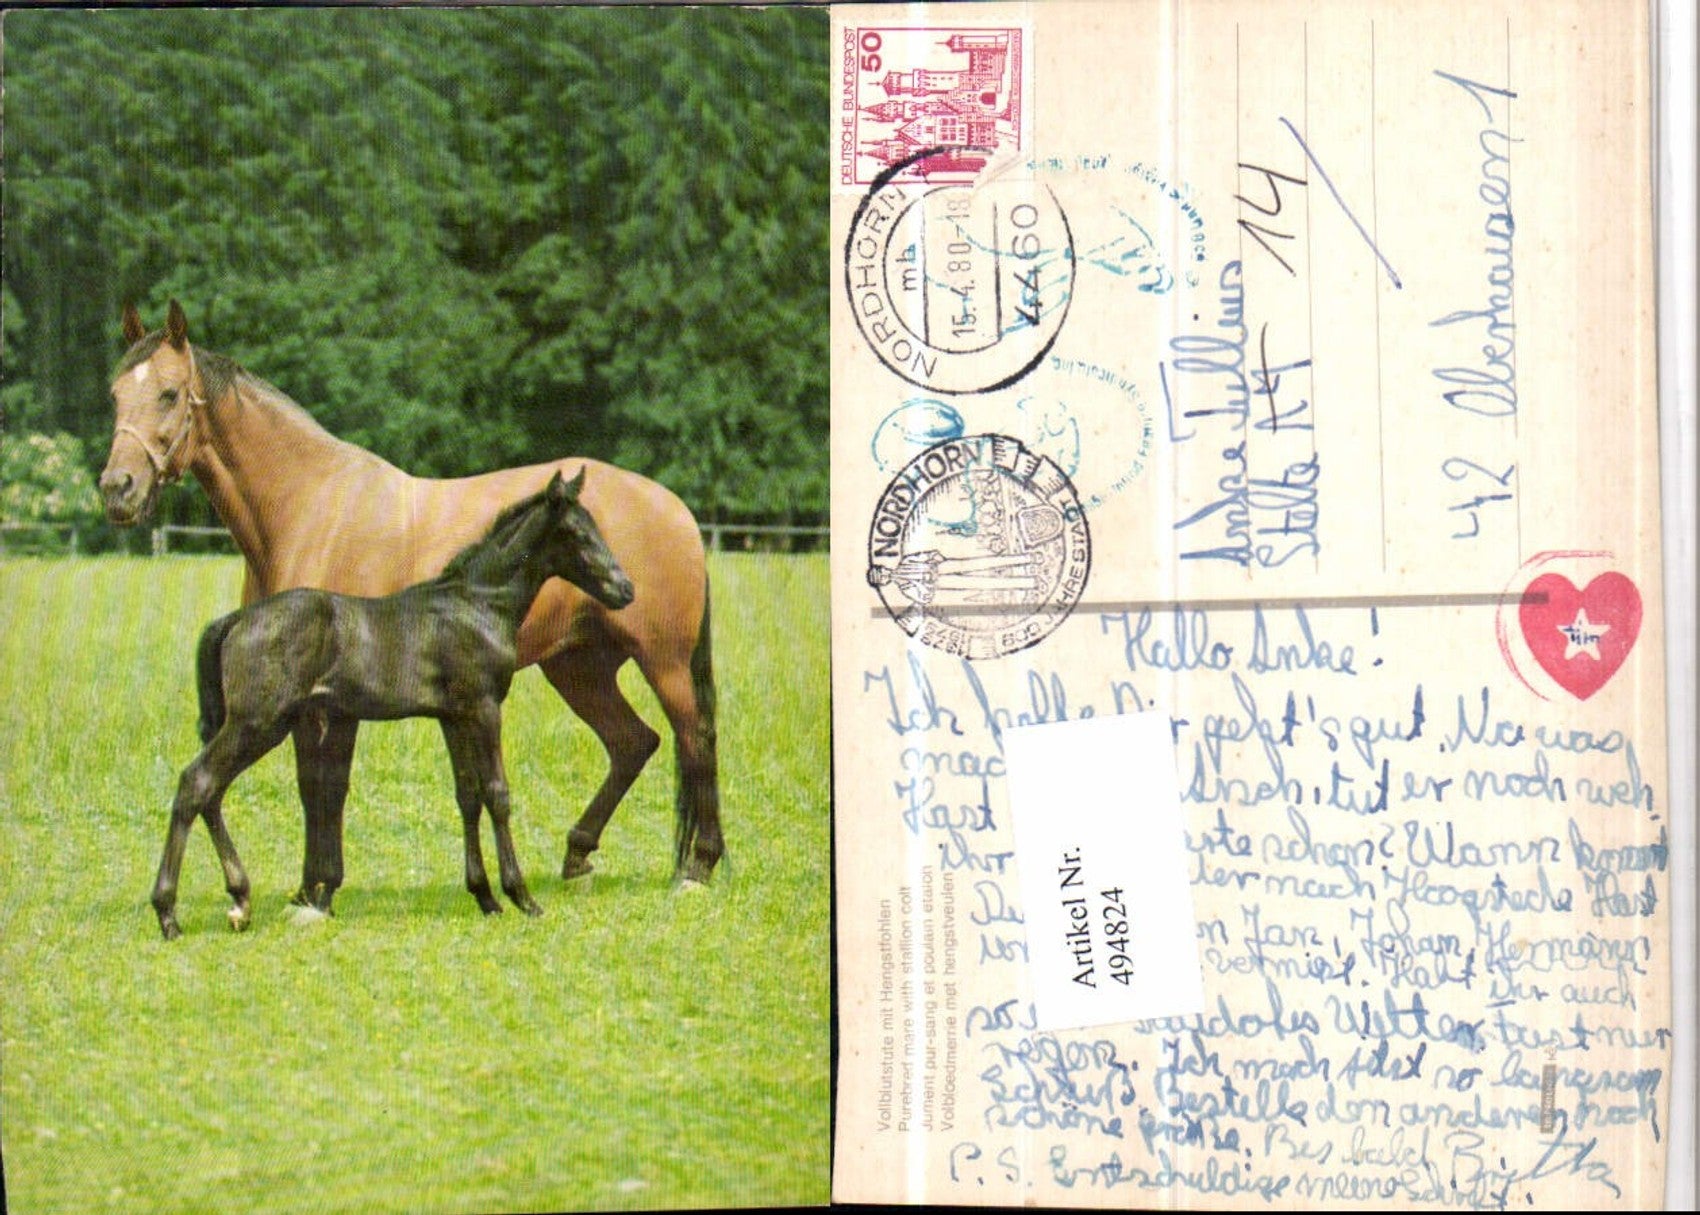 DEUTSCHE BUNDESPOST
50
NORDHORN 1
mb
15.-4.80-18
4460
NORDHORN
600 JAHRE STADT
1379
1979
Anke
Stolte
14
42 Oberhausen 1
Hallo Anke!
Ich hoffe Dir geht's gut. Na was
mac Arsch, tut er noch weh.
Hast rte schon? Wann kommt
ihr der nach Hoogstede Hast
De n Jan, Johann, Hermann
vermist. Habt ihr auch
so Wetter, fast nur
regen. Ich mach jetzt so langsam
Schluß. Bestelle den anderen noch
schöne grüße. Bis bald
P.S. Entschuldige meine Schrift.
Artikel Nr.
494824
Vollblutstute mit Hengstfohlen
Purebred mare with stallion colt
Jument pur-sang et poulain étalon
Volbloedmerrie met hengstveulen